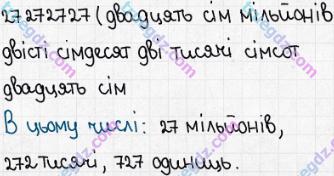 27272727 (двадцять сім мільйонів
двісті сімдесят дві тисячі сімсот
двадцять сім
В цьому числі: 27 мільйонів,
272 тисячі, 727 одиниць.